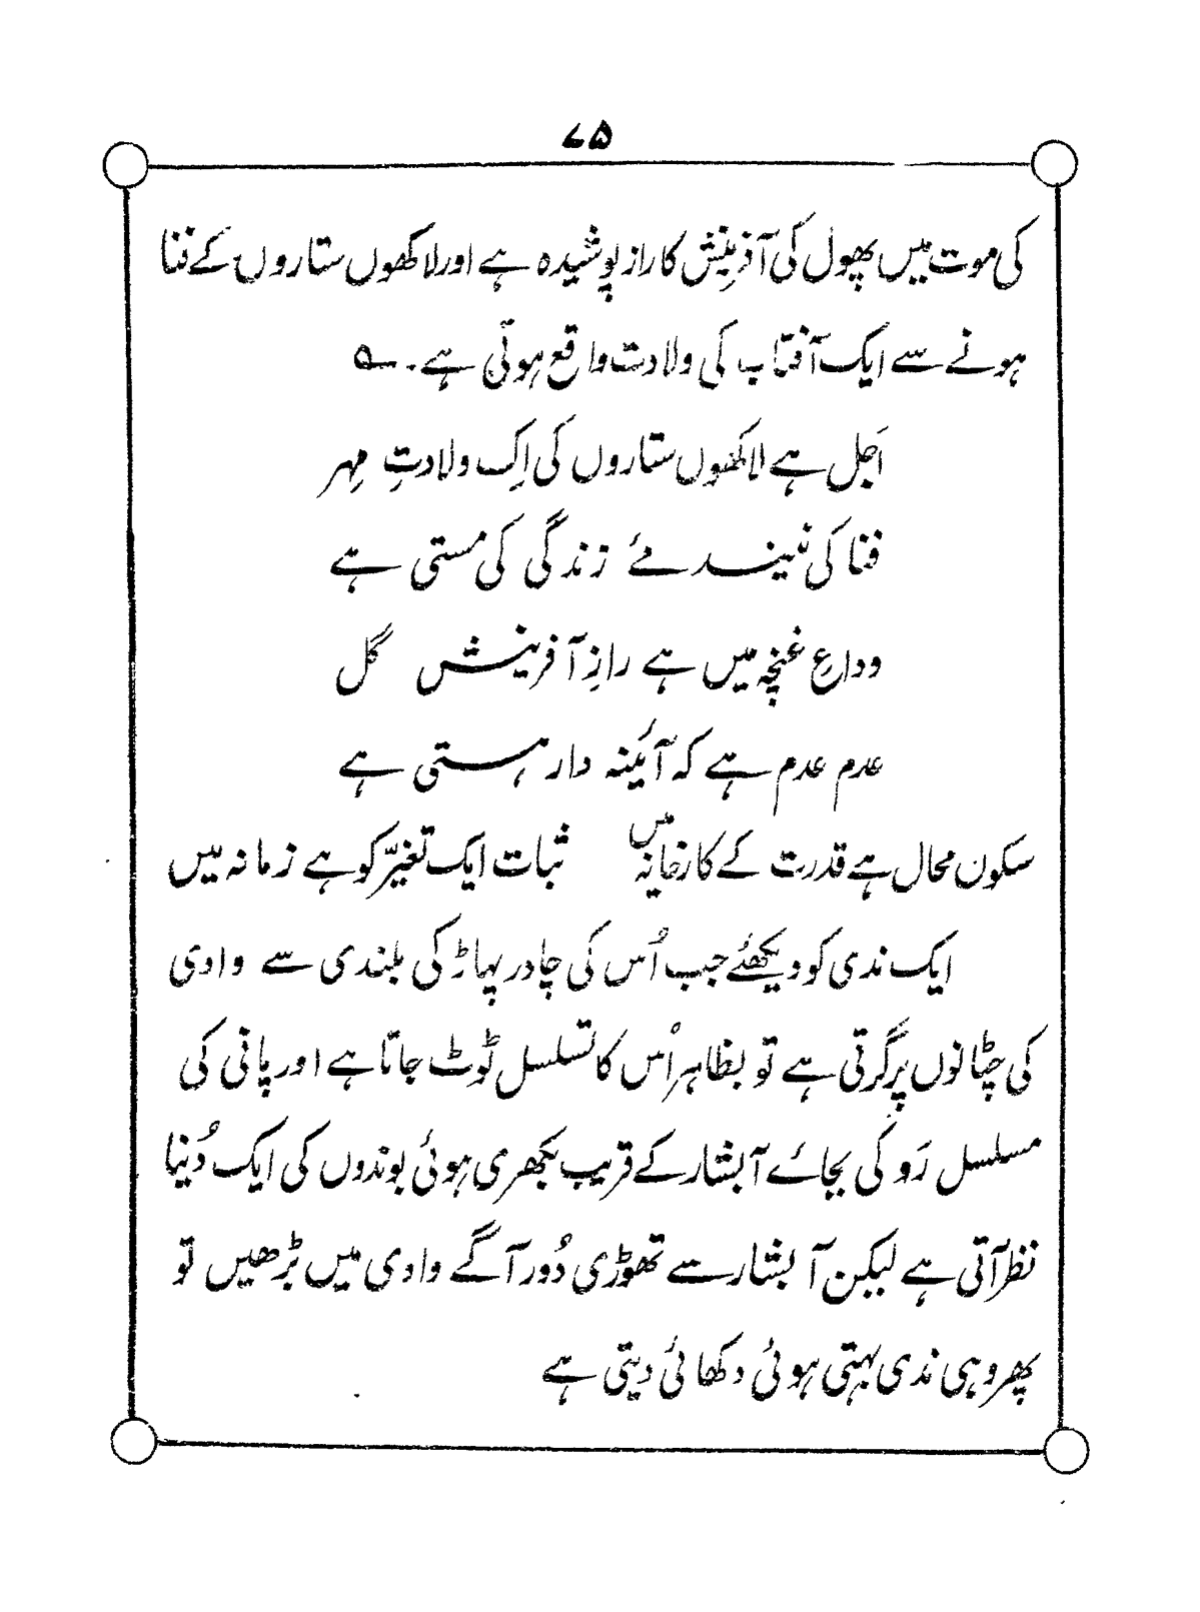 ۷۵
کی موت میں پھول کی آفرینش کا راز پوشیدہ ہے اور لاکھوں ستاروں کے فنا
ہونے سے ایک آفتاب کی ولادت واقع ہوتی ہے۔ ؎
اَجل ہے لاکھوں ستاروں کی اِک ولادتِ مِہر
فنا کی نیند مئے زندگی کی مستی ہے
وداعِ غنچہ میں ہے رازِ آفرینش گل
عدم عدم ہے کہ آئینہ دار ہستی ہے
سکون محال ہے قدرت کے کارخانہ میں ثبات ایک تغیّر کو ہے زمانہ میں
ایک ندی کو دیکھئے جب اُس کی چادر پہاڑ کی بلندی سے وادی
کی چٹانوں پر گرتی ہے تو بظاہر اُس کا تسلسل ٹوٹ جاتا ہے اور پانی کی
مسلسل رَو کی بجائے آبشار کے قریب بکھری ہوئی بوندوں کی ایک دُنیا
نظر آتی ہے لیکن آبشار سے تھوڑی دُور آگے وادی میں بڑھیں تو
پھر وہی ندی بہتی ہوئی دکھائی دیتی ہے